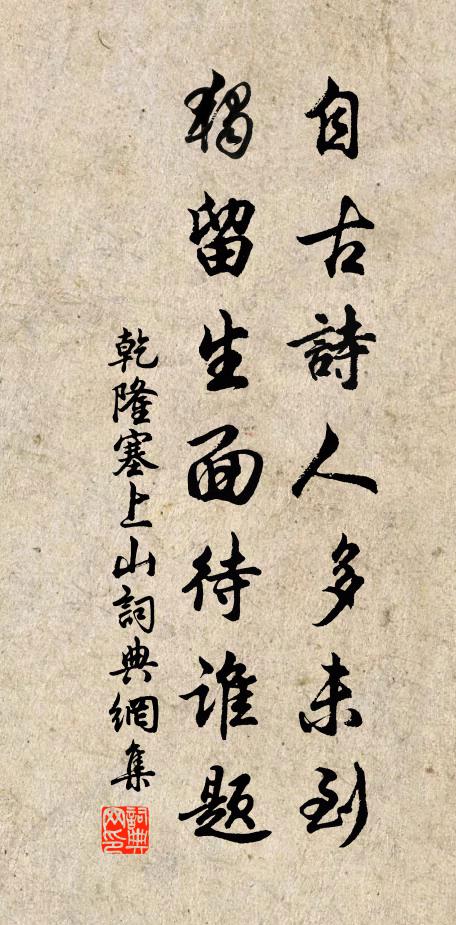 自古詩人多未到
獨留生面待誰題
乾隆塞上山詞典網集
詞典网印